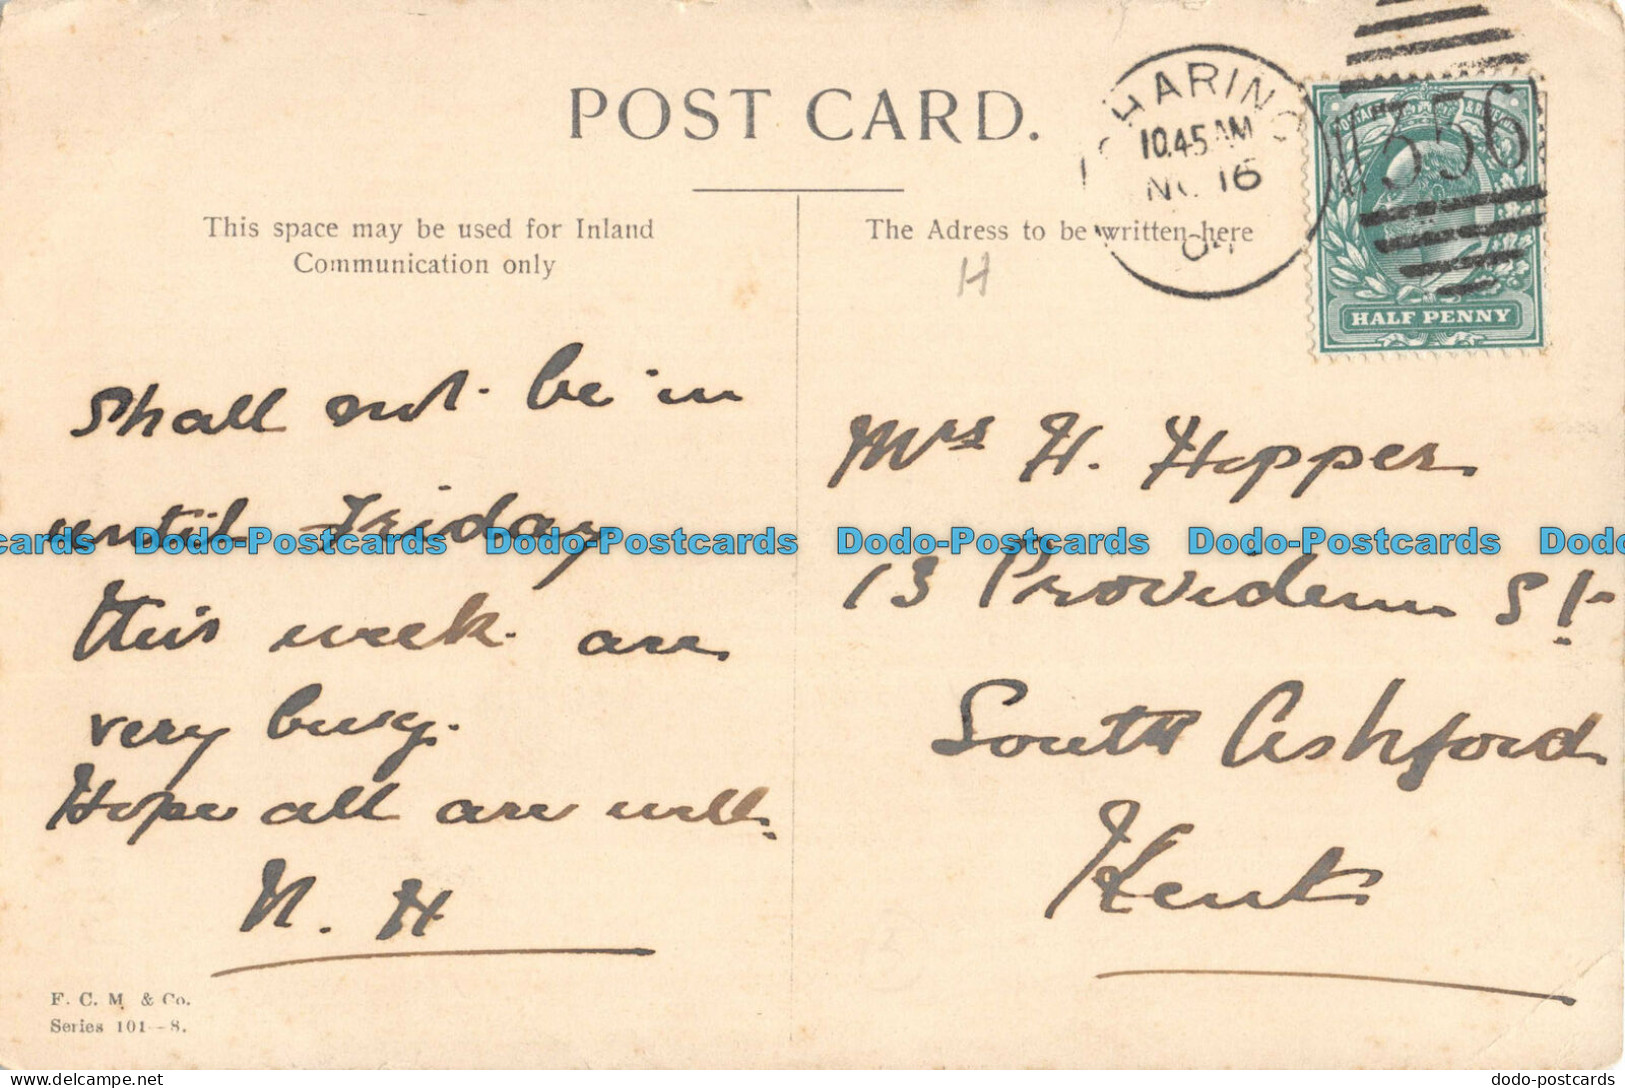 POST CARD.
This space may be used for Inland
Communication only
The Adress to be written here
H
CHARING
10.45 AM
NO 16
04
356
POSTAGE & REVENUE
HALF PENNY
Shall not be in
until Friday
this week. are
very busy.
Hope all are well.
N. H
Mrs H. Hopper
13 Providence St.
South Ashford
Kent
F. C. M & Co.
Series 101—8.
Dodo-Postcards Dodo-Postcards Dodo-Postcards Dodo-Postcards
Copyright 2023 © Delcampe International srl/bv
dodo-postcards